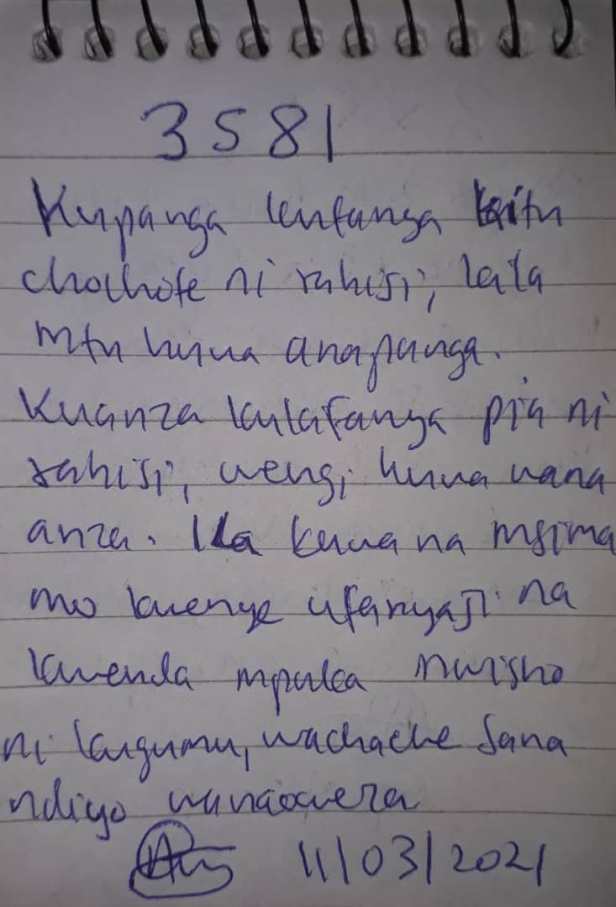 3581
Kupanga kufanya kitu
chochote ni rahisi, kila
mtu huwa anapanga.
Kuanza kukifanya pia ni
rahisi, wengi huwa wana
anza. Ila kuwa na msima
mo kwenye ufanyaji na
kwenda mpaka mwisho
ni kugumu, wachache sana
ndiyo wanaoweza
11/03/2021